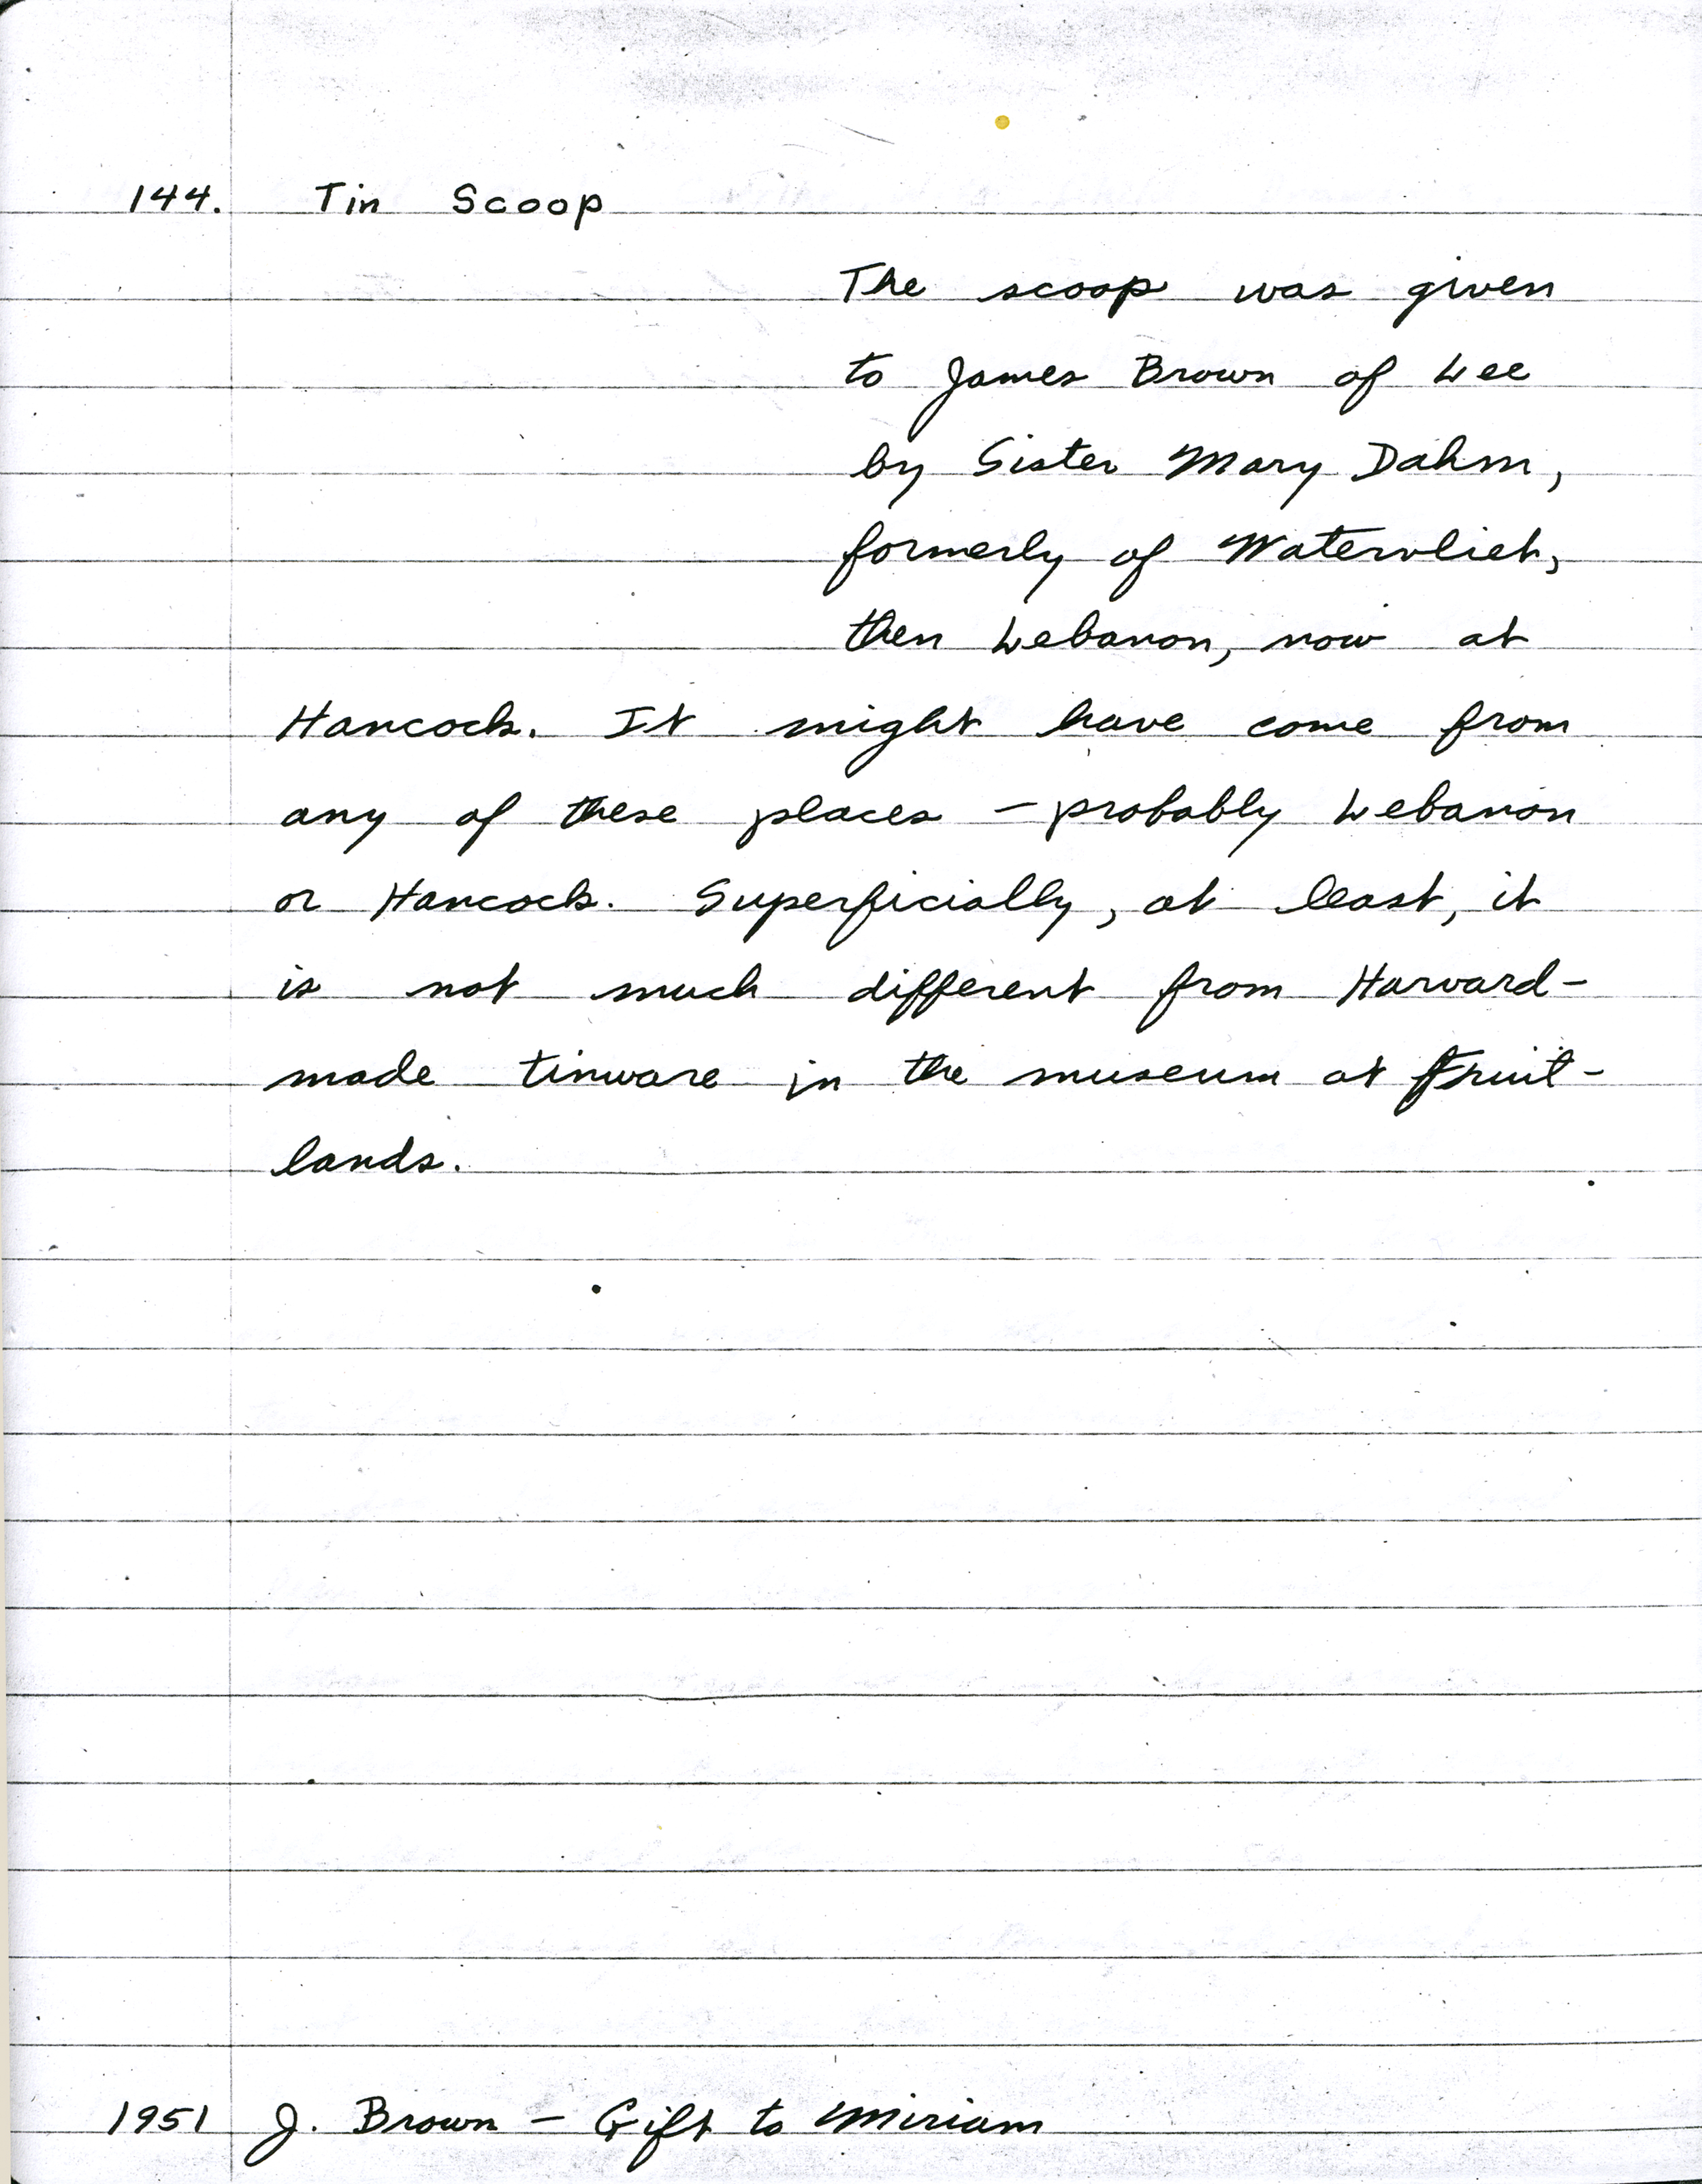 144. Tin Scoop
The scoop was given
to James Brown of Lee
by Sister Mary Dahm,
formerly of Watervliet,
then Lebanon, now at
Hancock. It might have come from
any of these places - probably Lebanon
or Hancock. Superficially, at least, it
is not much different from Harvard-
made tinware in the museum at Fruit-
lands.
1951 J. Brown - Gift to Miriam